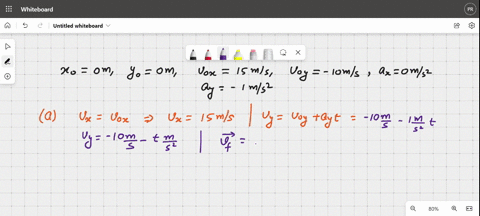 Whiteboard
PR
Untitled whiteboard
x₀ = 0m, y₀ = 0m, v₀ₓ = 15 m/s, v₀y = -10m/s, aₓ = 0m/s²
ay = -1 m/s²
(a) vₓ = v₀ₓ ⇒ vₓ = 15 m/s | vy = v₀y + ay t = -10 m/s - 1 m/s² t
vy = -10 m/s - t m/s² | v⃗f =
80%